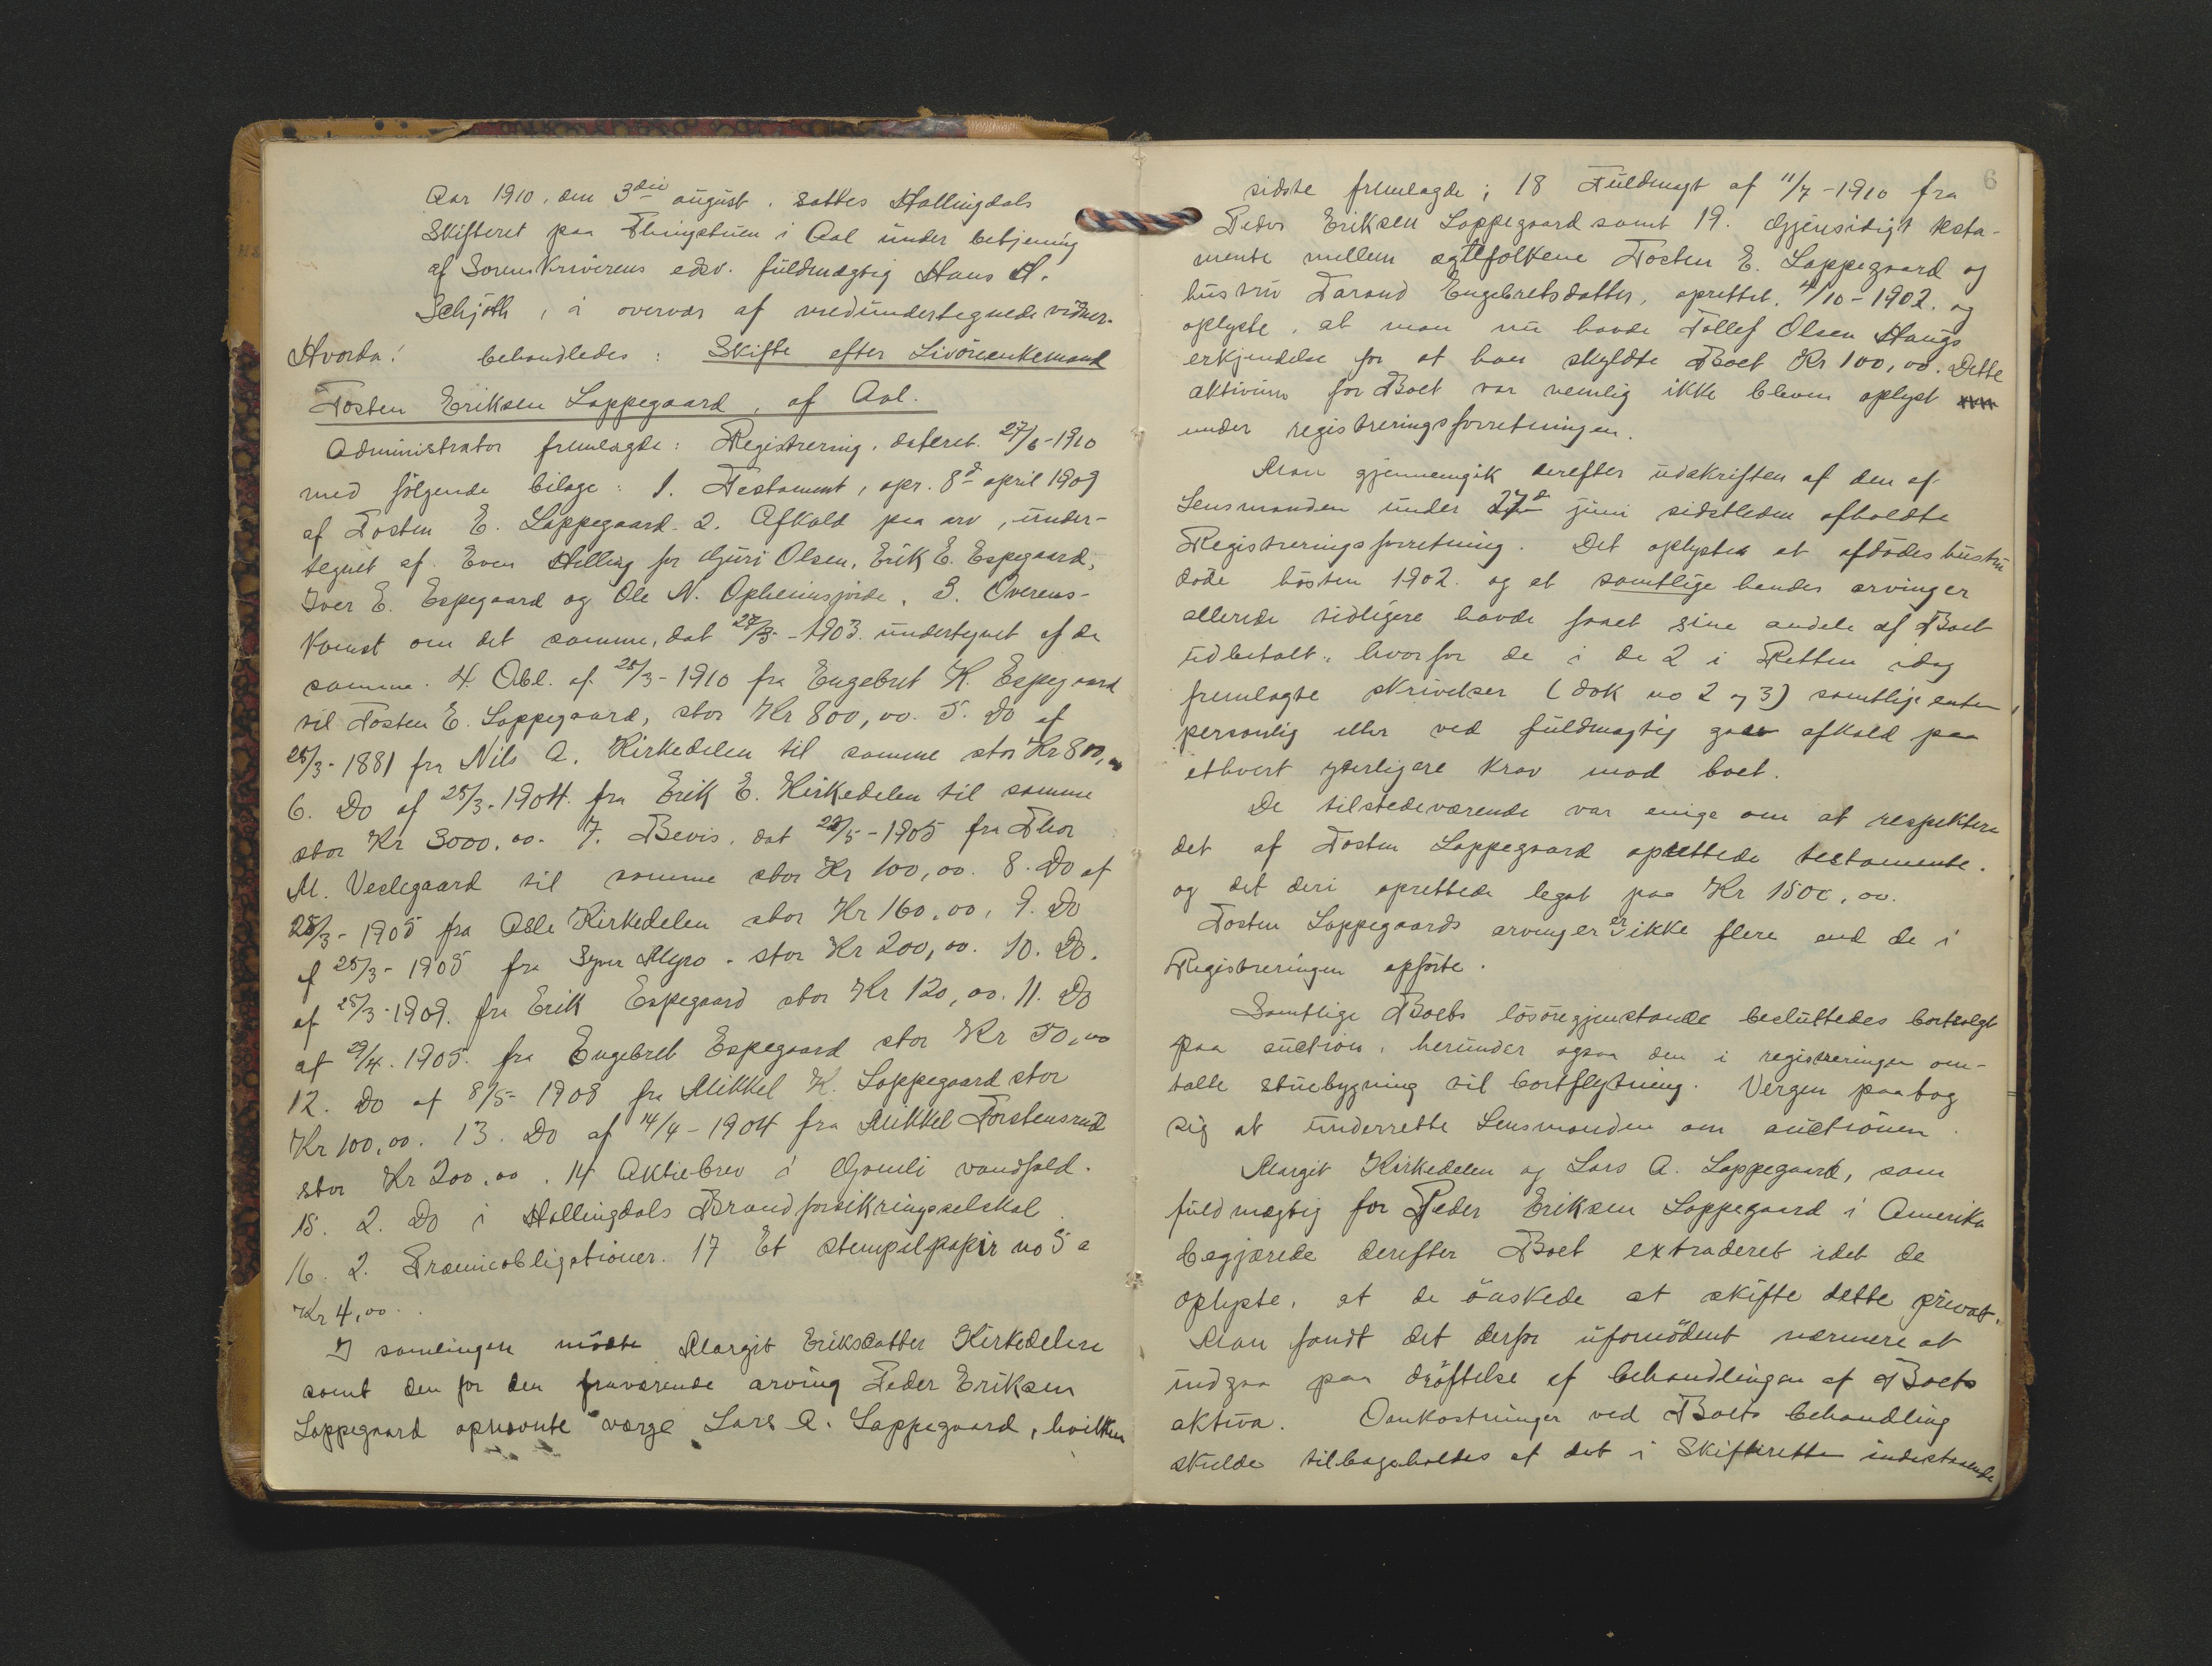 Aar 1910, den 3die august, sattes Hallingdals
Skifteret paa Thingstuen i Aal under betjening
af Sorenskriverens edsv. fuldmægtig Hans H.
Schjøth, i overvær af medundertegnede vidner.
Hvorda! behandledes: Skifte efter Livörenkemand
Tosten Eriksen Loppegaard, af Aal.
Administrator fremlagde: Registrering, dateret 27/6-1910
med følgende bilage: 1. Testament, opr. 8d april 1909
af Tosten E. Loppegaard. 2. Afkald paa arv, under-
tegnet af Even Helling for Guri Olsen, Erik E. Espegaard,
Iver E. Espegaard og Ole N. Opheimsjorde. 3. Overens-
komst om det samme, dat 28/3-1903 undertegnet af de
samme. 4. Obl. af 25/3-1910 fra Engebret K. Espegaard
til Tosten E. Loppegaard, stor Kr 800,00. 5. Do af
25/3-1881 fra Nils A. Kirkedelen til samme stor Kr 800,00
6. Do af 25/3-1904 fra Erik E. Kirkedelen til samme
stor Kr 3000,00. 7. Bevis, dat 22/5-1905 fra Thor
M. Veslegaard til samme stor Kr 100,00. 8. Do af
25/3-1905 fra Asle Kirkedelen stor Kr 160,00, 9. Do
af 25/3-1905 fra Syver Myro - stor Kr 200,00. 10. Do.
af 25/3-1909. fra Erik Espegaard stor Kr 120,00. 11. Do
af 29/4. 1905. fra Engebret Espegaard stor Kr 50,00
12. Do af 8/5-1908 fra Mikkel K. Loppegaard stor
Kr 100,00. 13. Do af 14/4-1904 fra Mikkel Torstensrud
stor Kr 200,00. 14 Aktiebrev i Gomli vandfald.
15. 2. Do i Hallingdals Brandforsikringsselskal
16. 2. Præmieobligationer. 17 Et stempelpapir no 5 a
Kr 4,00.
I samlingen mödte Margit Eriksdatter Kirkedelen
samt den for den fraværende arving Peder Eriksen
Loppegaard opnævnte værge Lars A. Loppegaard, hvilken
6
sidste fremlagde; 18 Fuldmagt af 11/7-1910 fra
Peder Eriksen Loppegaard samt 19. Gjensidigt testa-
mente mellem ægtefolkene Tosten E. Loppegaard og
hustru Tarand Engebretsdatter, oprettet 4/10-1902. og
oplyste, at man nu havde Tollef Olsen Haugs
erkjendelse for at han skyldte Boet Kr 100,00. Dette
aktivum for Boet var nemlig ikke bleven oplyst
under registreringsforretningen.
Man gjennemgik derefter udskriften af den af
Lensmanden under 27d juni sidstleden afholdte
Registreringsforretning. Det oplystes at afdødes hustru
döde hösten 1902. og at samtlige hendes arvinger
allerede tidligere havde faaet sine andele af Boet
udbetalt, hvorfor de i de 2 i Retten idag
fremlagte skrivelser (dok no 2 og 3) samtlige enten
personlig eller ved fuldmægtig gav afkald paa
ethvert yderligere krav mod boet.
De tilstedeværende var enige om at respektere
det af Tosten Loppegaard oprettede testamente.
og det deri oprettede legat paa Kr 1500,00.
Tosten Loppegaards arvinger er ikke flere end de i
Registreringen opførte.
Samtlige Boets lösöregjenstande besluttedes bortsolgt
paa auction, herunder ogsaa den i registreringen om-
talte stuebygning til bortflytning. Vergen paatog
sig at underrette Lensmanden om auctionen.
Margit Kirkedelen og Lars A. Loppegaard, som
fuldmægtig for Peder Eriksen Loppegaard i Amerika
begjærede derefter Boet extraderet idet de
oplyste, at de önskede at skifte dette privat.
Man fandt det derfor ufornödent nærmere at
indgaa paa dröftelse af behandlingen af Boets
aktiva. Omkostninger ved Boets behandling
skulde tilbageholdes af det i Skifteretten indestaaende